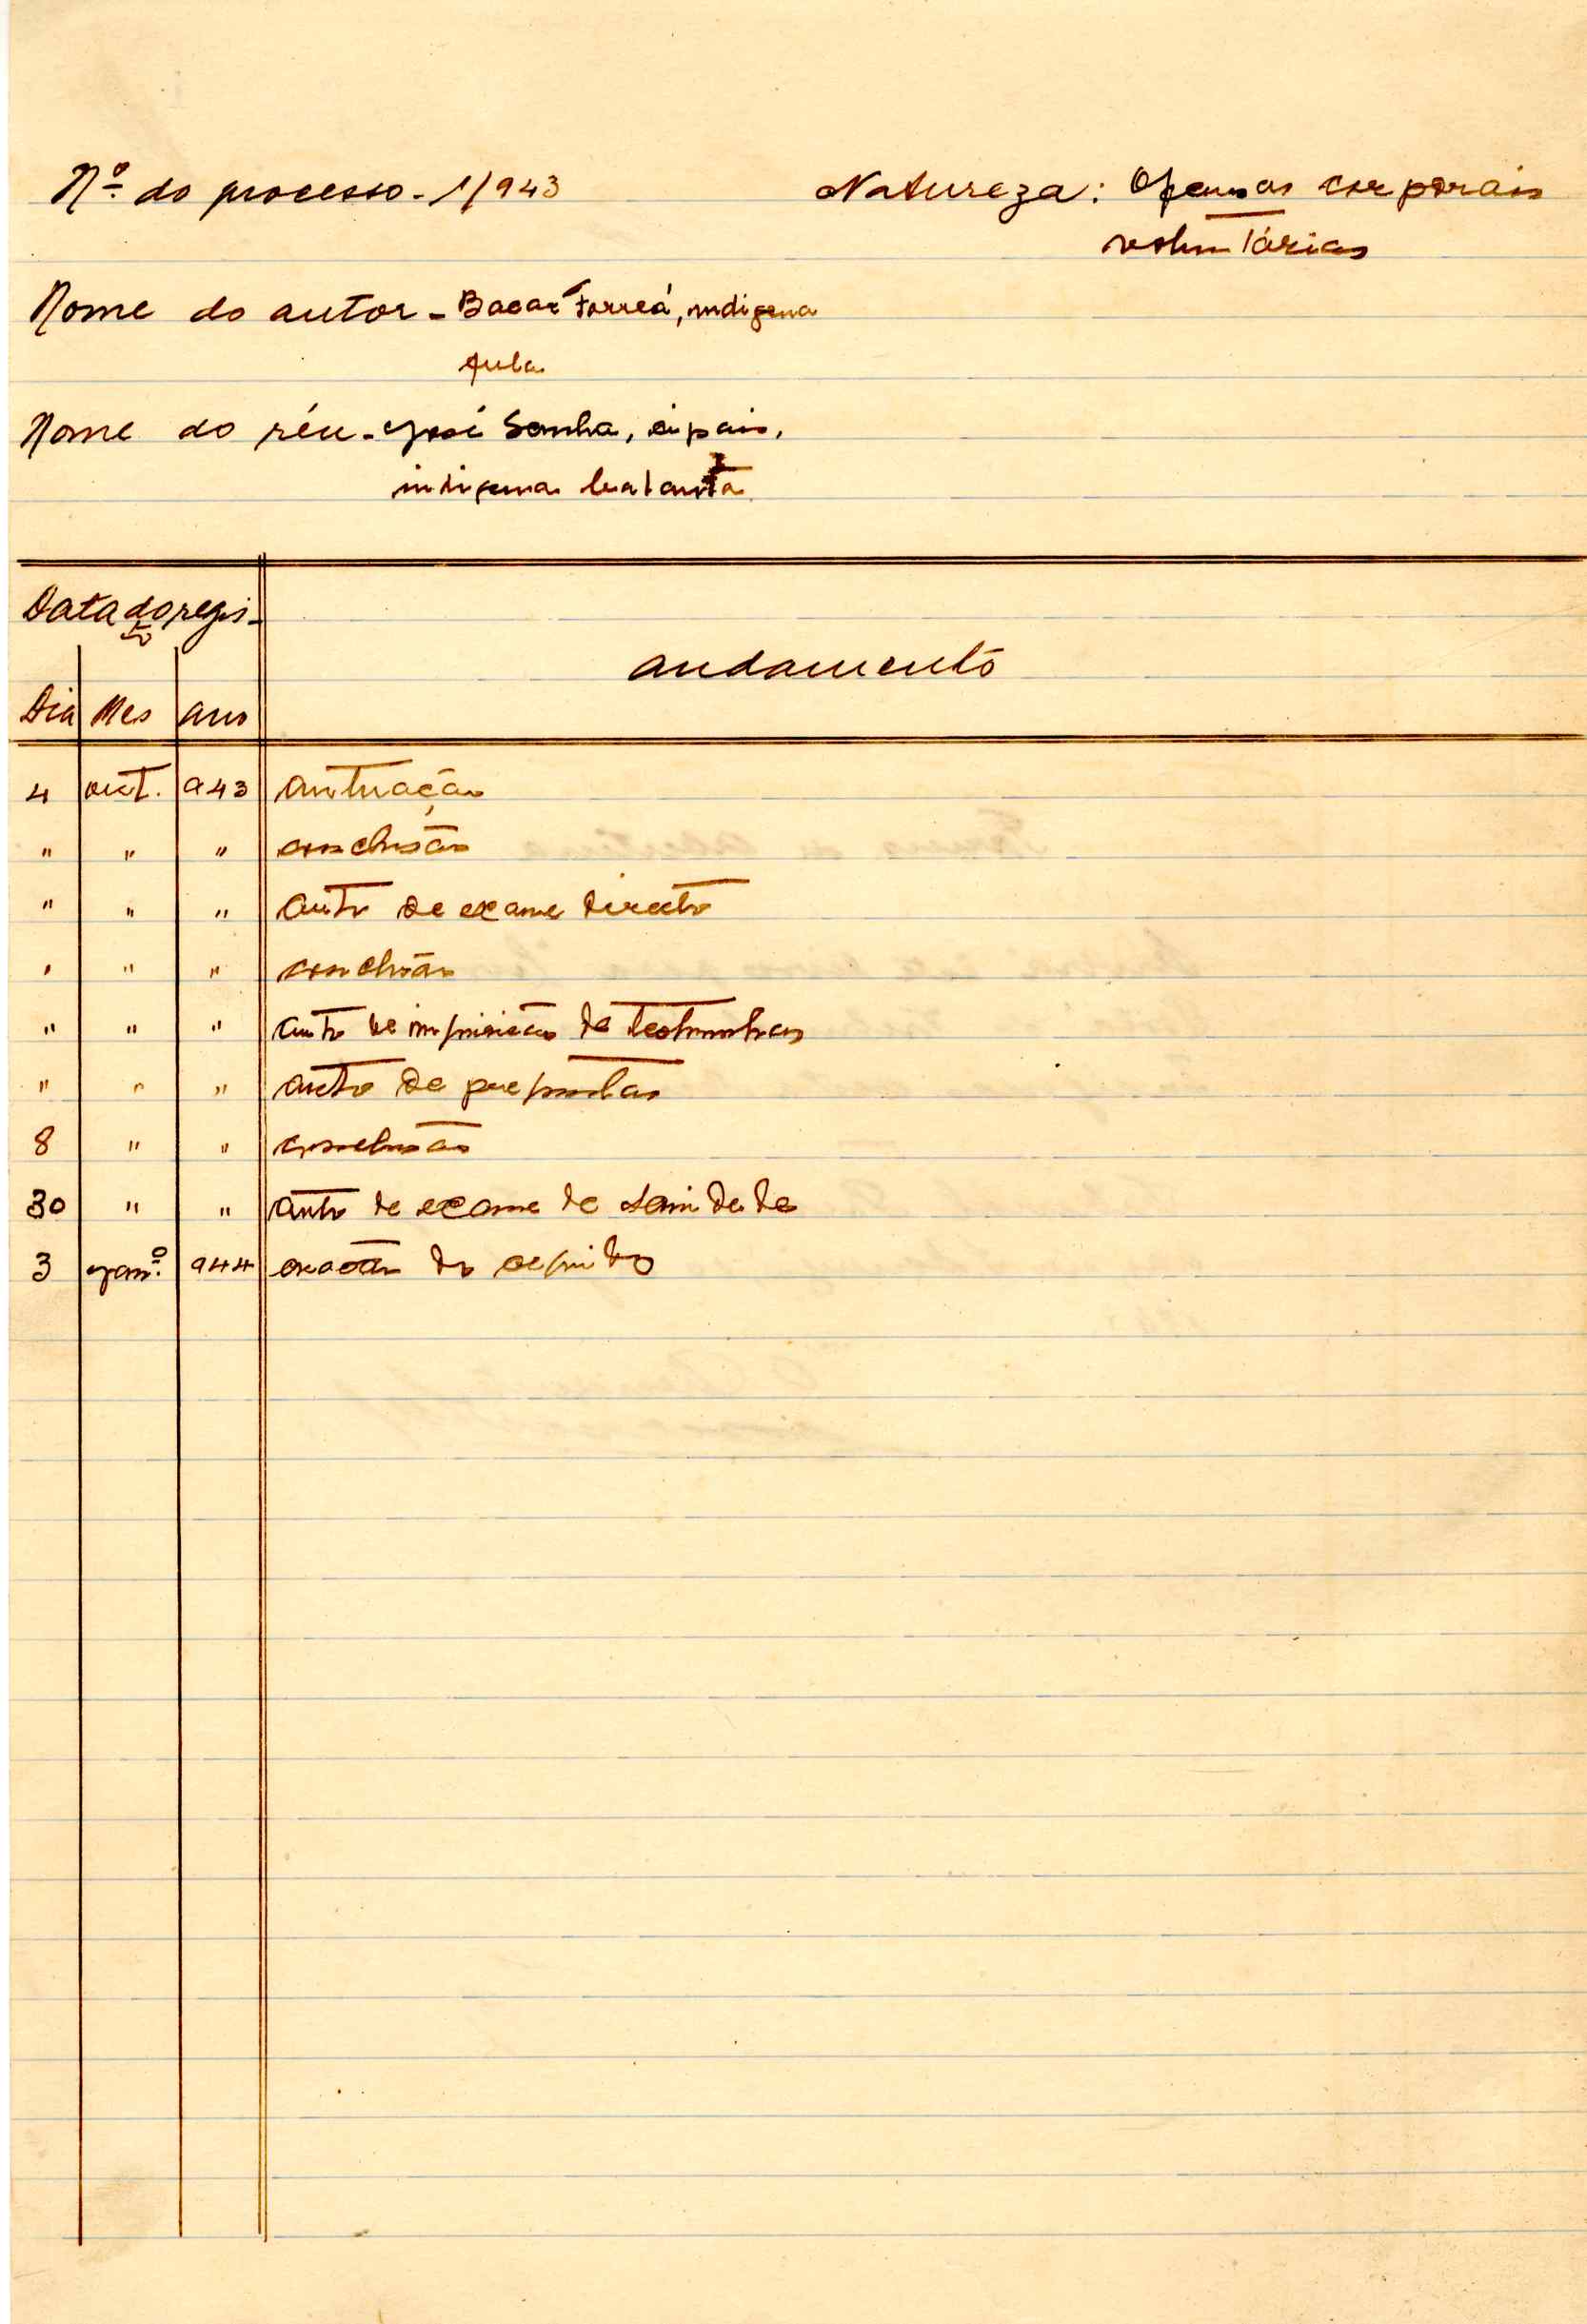 Nº do processo - 1/943
Natureza: Ofensas corporais
voluntárias
Nome do autor - Bacar Forreá, indigena
fula
Nome do réu - José Sanha, cipaio,
indigena balanta
Data do regis-
to
andamento
Dia Mes ano
4 out. 943 autuação
" " " conclusão
" " " auto de exame directo
" " " conclusão
" " " auto de inquirição de testemunhas
" " " auto de perguntas
8 " " conclusão
30 " " auto de exame de sanidade
3 jan.º 944